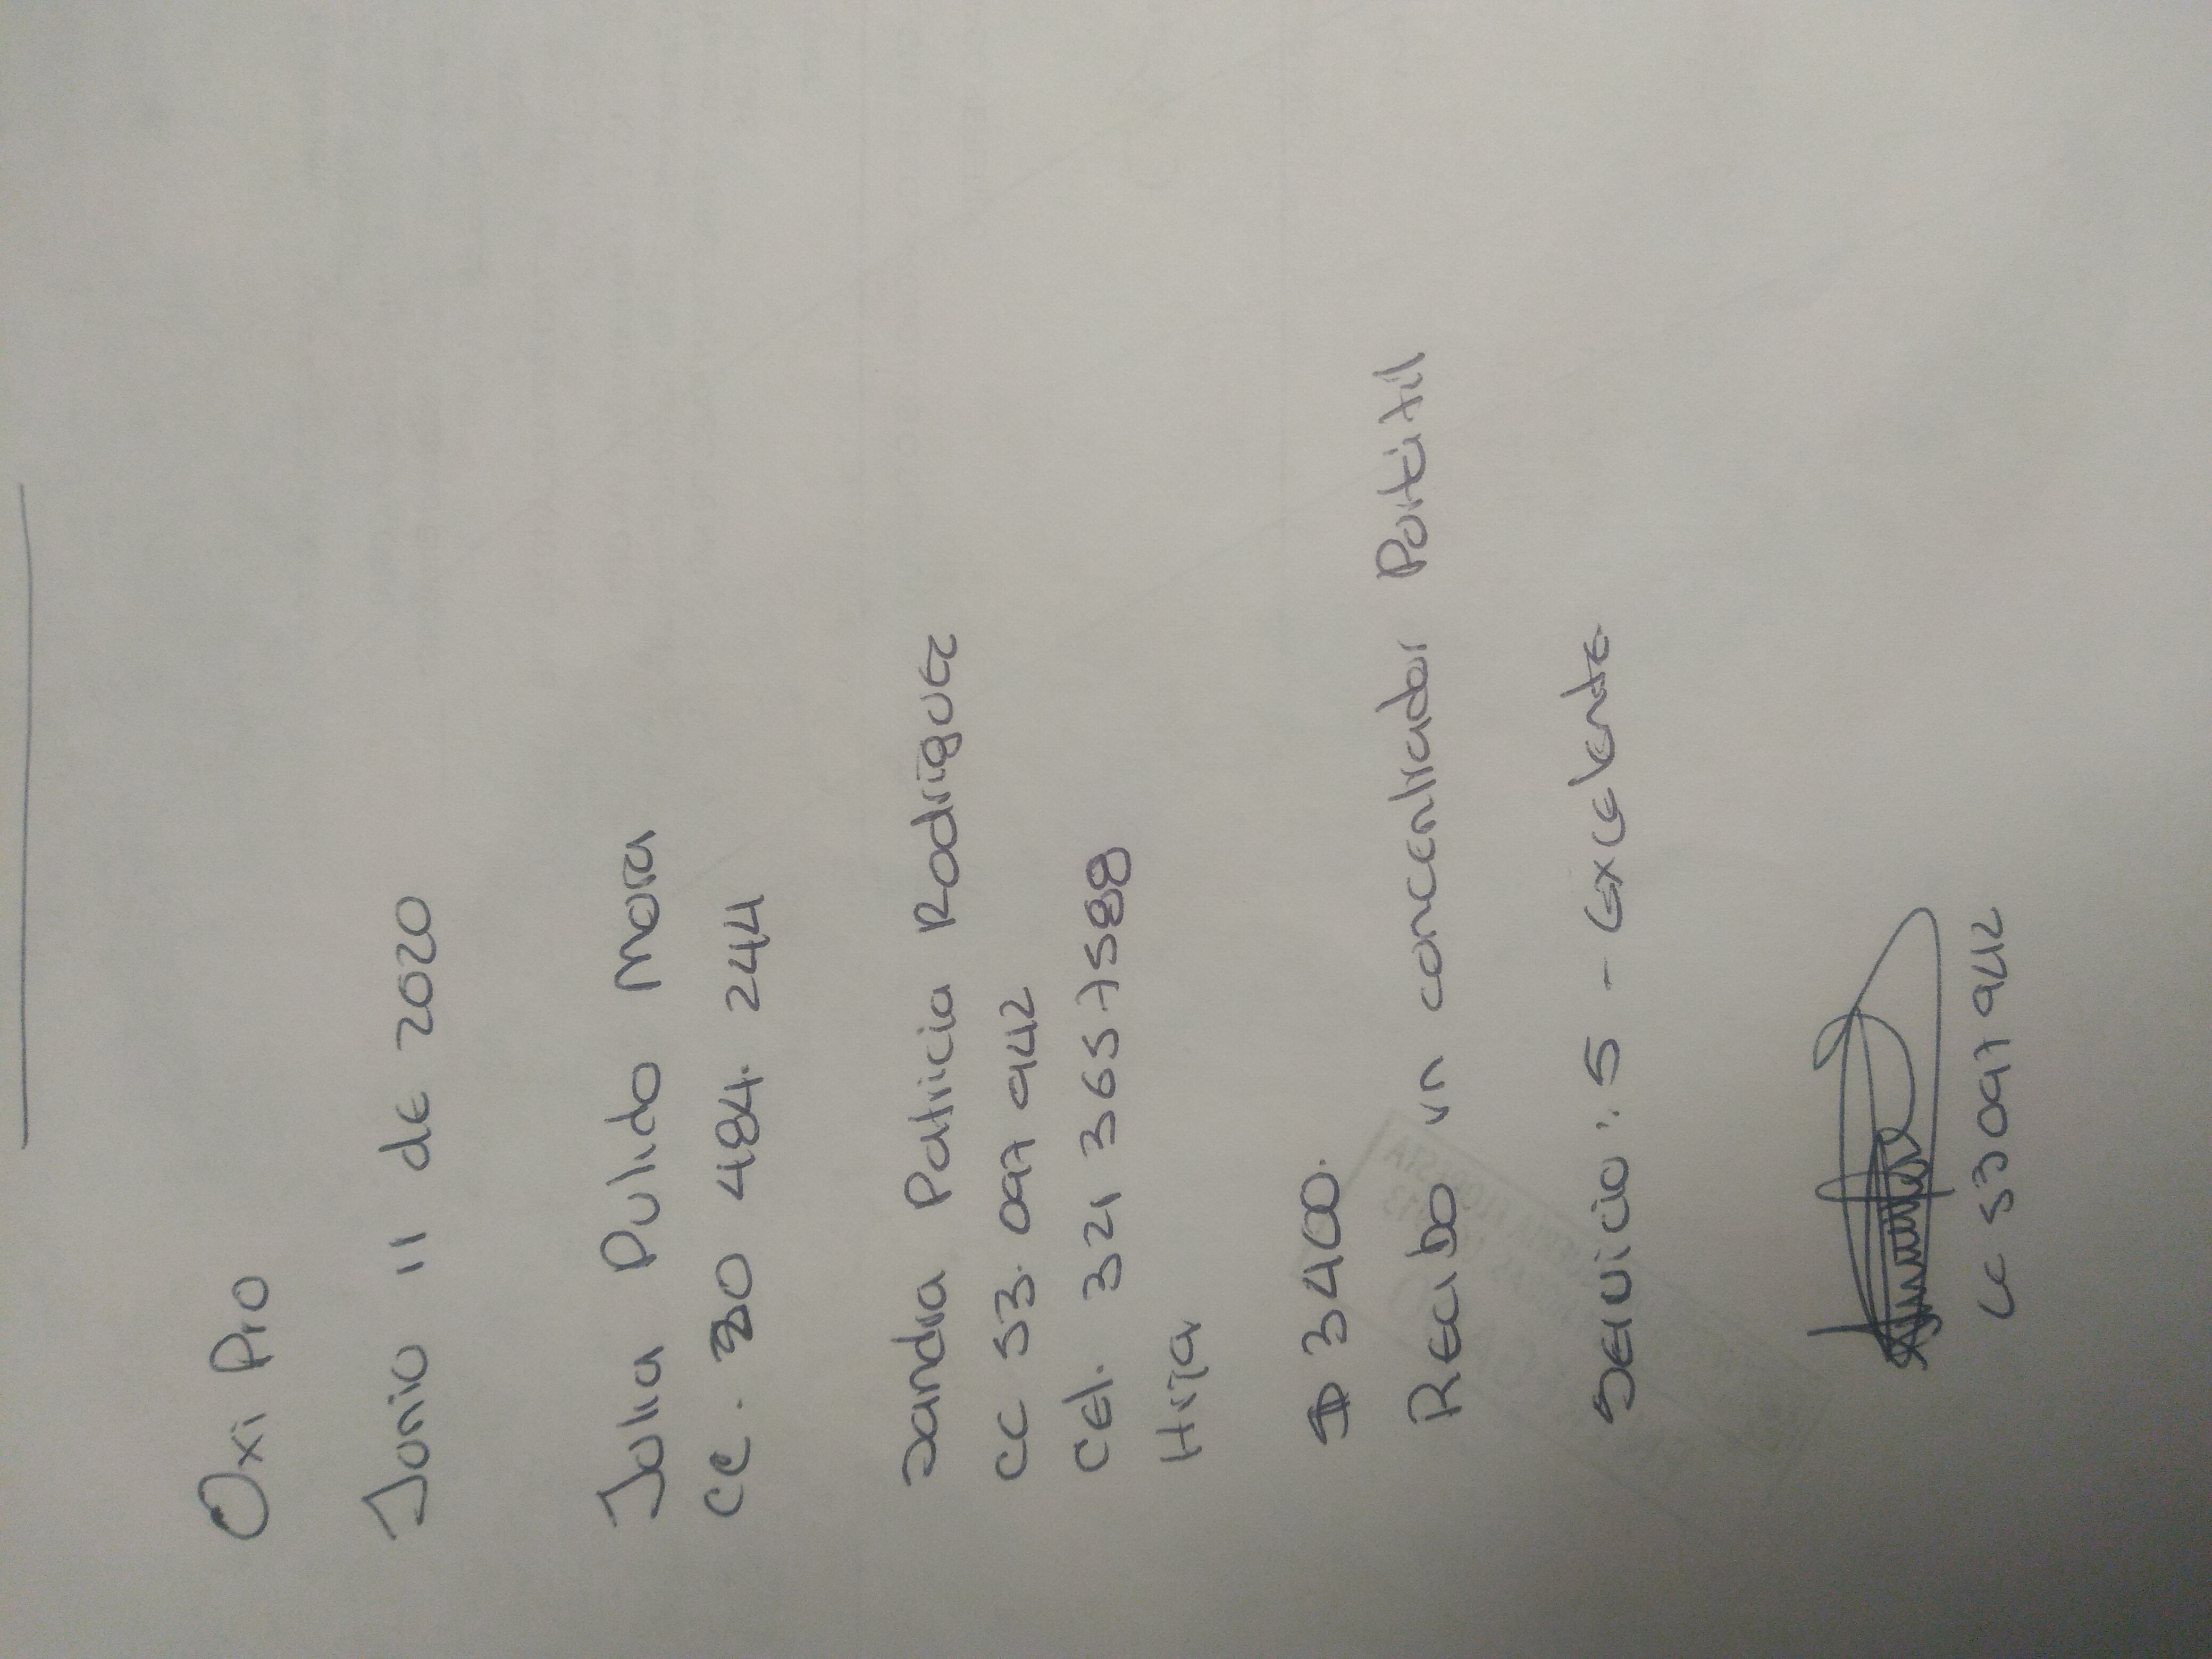 Oxi Pro
Junio 11 de 2020
Julia Pulido Mora
CC. 30 484. 244
Sandra Patricia Rodriguez
CC 53. 097 942
Cel. 321 3657588
Hija
$ 3400.
Recibo un concentrador Portatil
Servicio: 5 - Excelente
CC 53097942